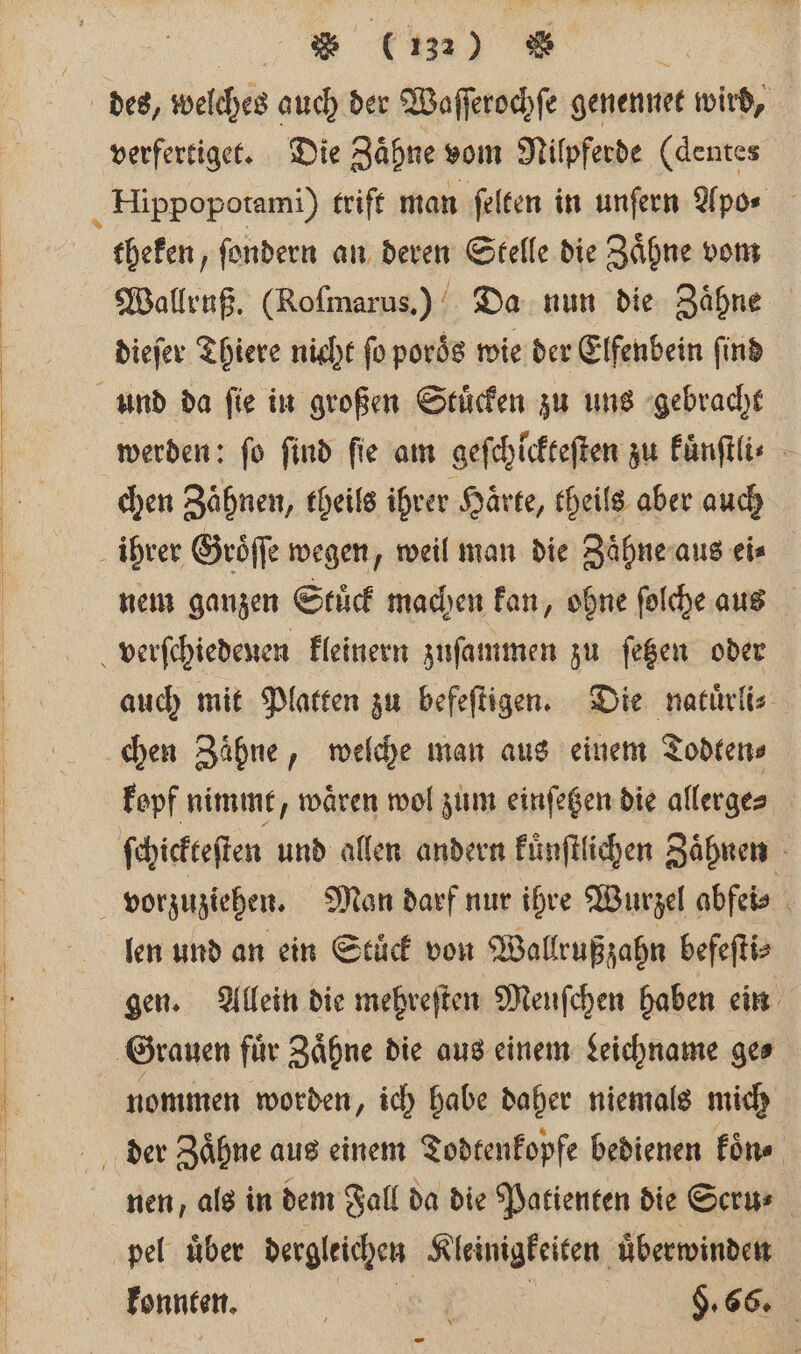 ❉ (132) ❉
des, welches auch der Waſſerochſe genennet wird,
verfertiget. Die Zaͤhne vom Nilpferde (dentes
Hippopotami) trift man ſelten in unſern Apo⸗
theken, ſondern an deren Stelle die Zaͤhne vom
Wallruß. (Roſmarus.) Da nun die Zaͤhne
dieſer Thiere nicht ſo poroͤs wie der Elfenbein ſind
und da ſie in großen Stuͤcken zu uns gebracht
werden: ſo ſind ſie am geſchickteſten zu kuͤnſtli⸗
chen Zaͤhnen, theils ihrer Haͤrte, theils aber auch
ihrer Groͤſſe wegen, weil man die Zaͤhne aus ei⸗
nem ganzen Stuͤck machen kan, ohne ſolche aus
verſchiedenen kleinern zuſammen zu ſetzen oder
auch mit Platten zu befeſtigen. Die natuͤrli⸗
chen Zaͤhne, welche man aus einem Todten⸗
kopf nimmt, waͤren wol zum einſetzen die allerge⸗
ſchickteſten und allen andern kuͤnſtlichen Zaͤhnen
vorzuziehen. Man darf nur ihre Wurzel abfei⸗
len und an ein Stuͤck von Wallrußzahn befeſti⸗
gen. Allein die mehreſten Menſchen haben ein
Grauen fuͤr Zaͤhne die aus einem Leichname ge⸗
nommen worden, ich habe daher niemals mich
der Zaͤhne aus einem Todtenkopfe bedienen koͤn⸗
nen, als in dem Fall da die Patienten die Scru⸗
pel uͤber dergleichen Kleinigkeiten uͤberwinden
konnten. §. 66.